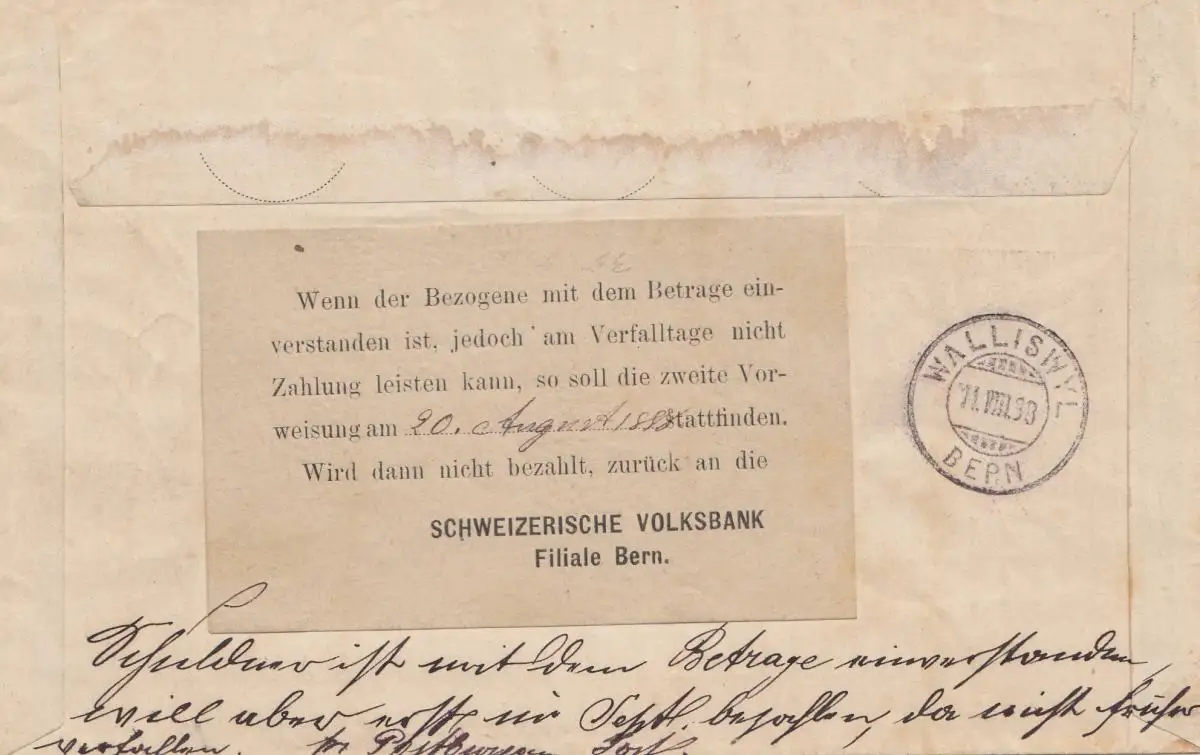 Wenn der Bezogene mit dem Betrage ein-
verstanden ist, jedoch am Verfalltage nicht
Zahlung leisten kann, so soll die zweite Vor-
weisung am 20. August 1893 stattfinden.
Wird dann nicht bezahlt, zurück an die
SCHWEIZERISCHE VOLKSBANK
Filiale Bern.
WALLISWYL
11.VIII.93
BERN
Schuldner ist mit dem Betrage einverstanden,
will aber erst im Sept. bezahlen, da nicht früher
verfallen.